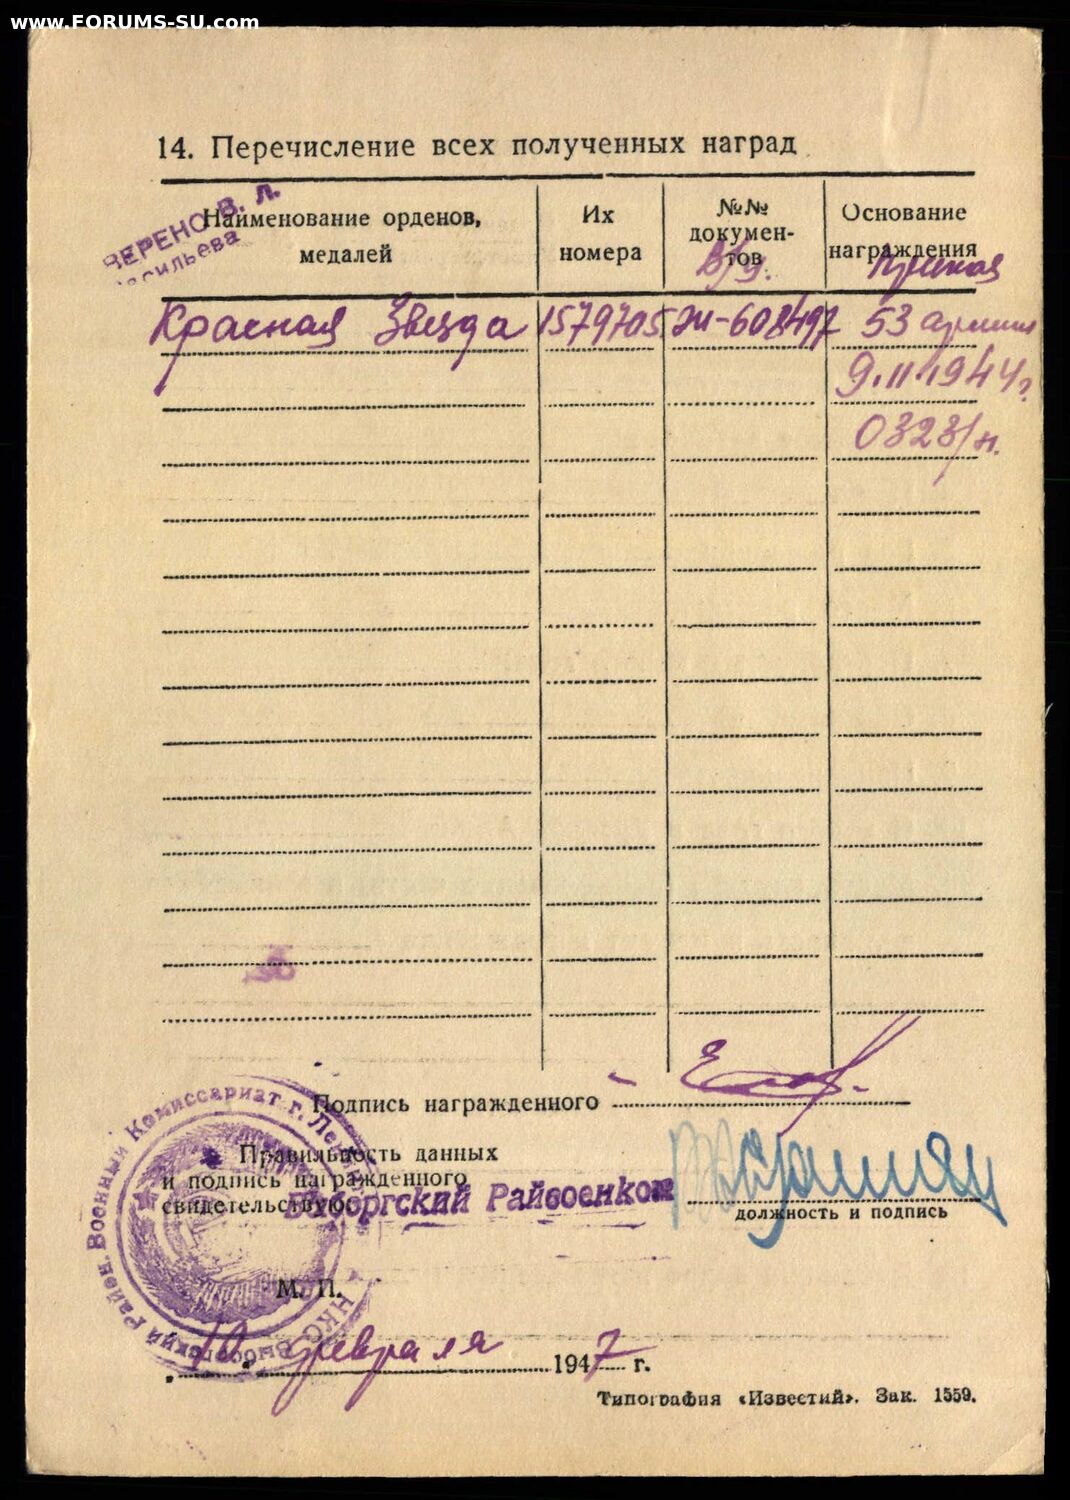 www.FORUMS-SU.com
14. Перечисление всех полученных наград
ВЕРЕНО В. Л.
Наименование орденов, медалей
Их номера
№№ документов
Основание награждения
в/у. Приказ
Красная Звезда 1579705 60849 53 армии
9.11.1944г
0323/н.
Подпись награжденного
Правильность данных
и подпись награжденного
свидетельствую
Выборгский Райвоенком
должность и подпись
Выборгский Район. Военный Комиссариат г.
НКО
М. П.
10 февраля 1947 г.
Типография «Известий». Зак. 1559.